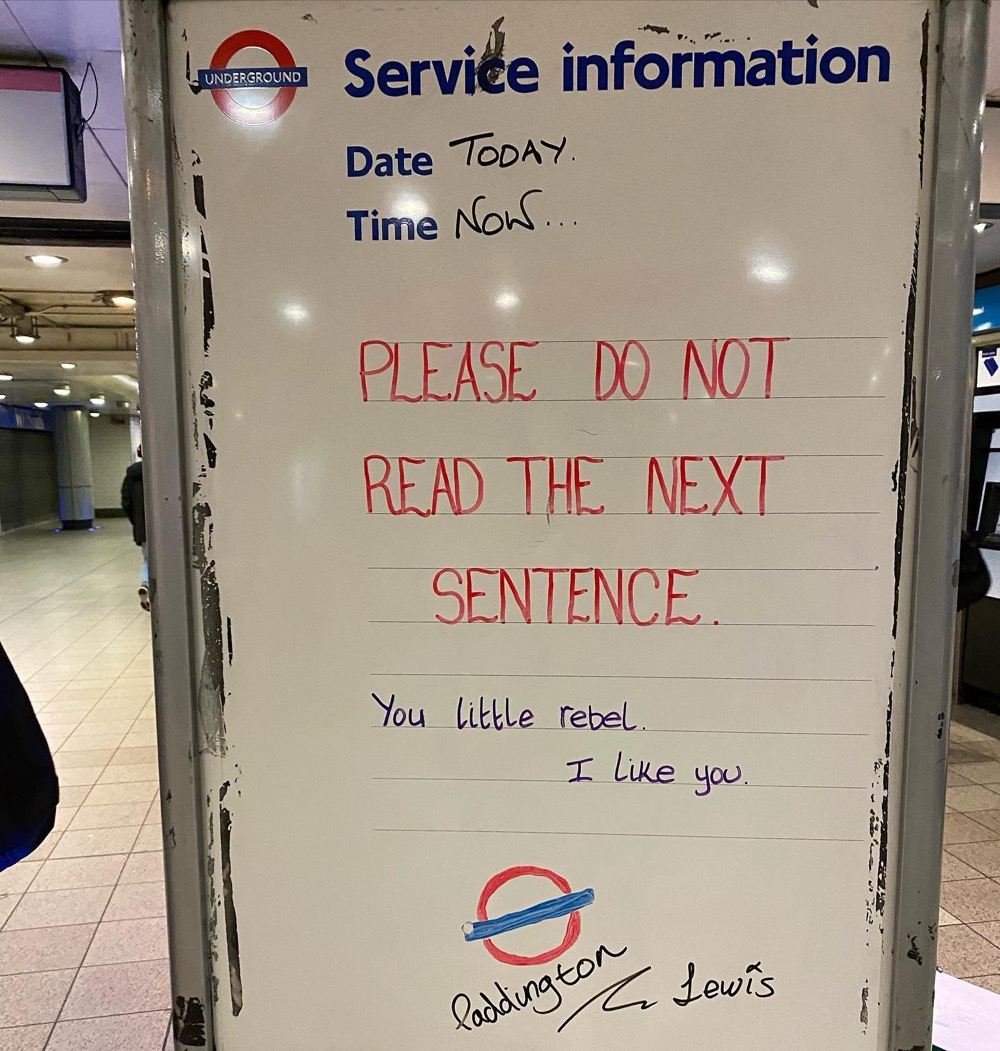 UNDERGROUND
Service information
Date TODAY.
Time NOW...
PLEASE DO NOT
READ THE NEXT
SENTENCE.
You little rebel.
I like you.
Paddington
Lewis